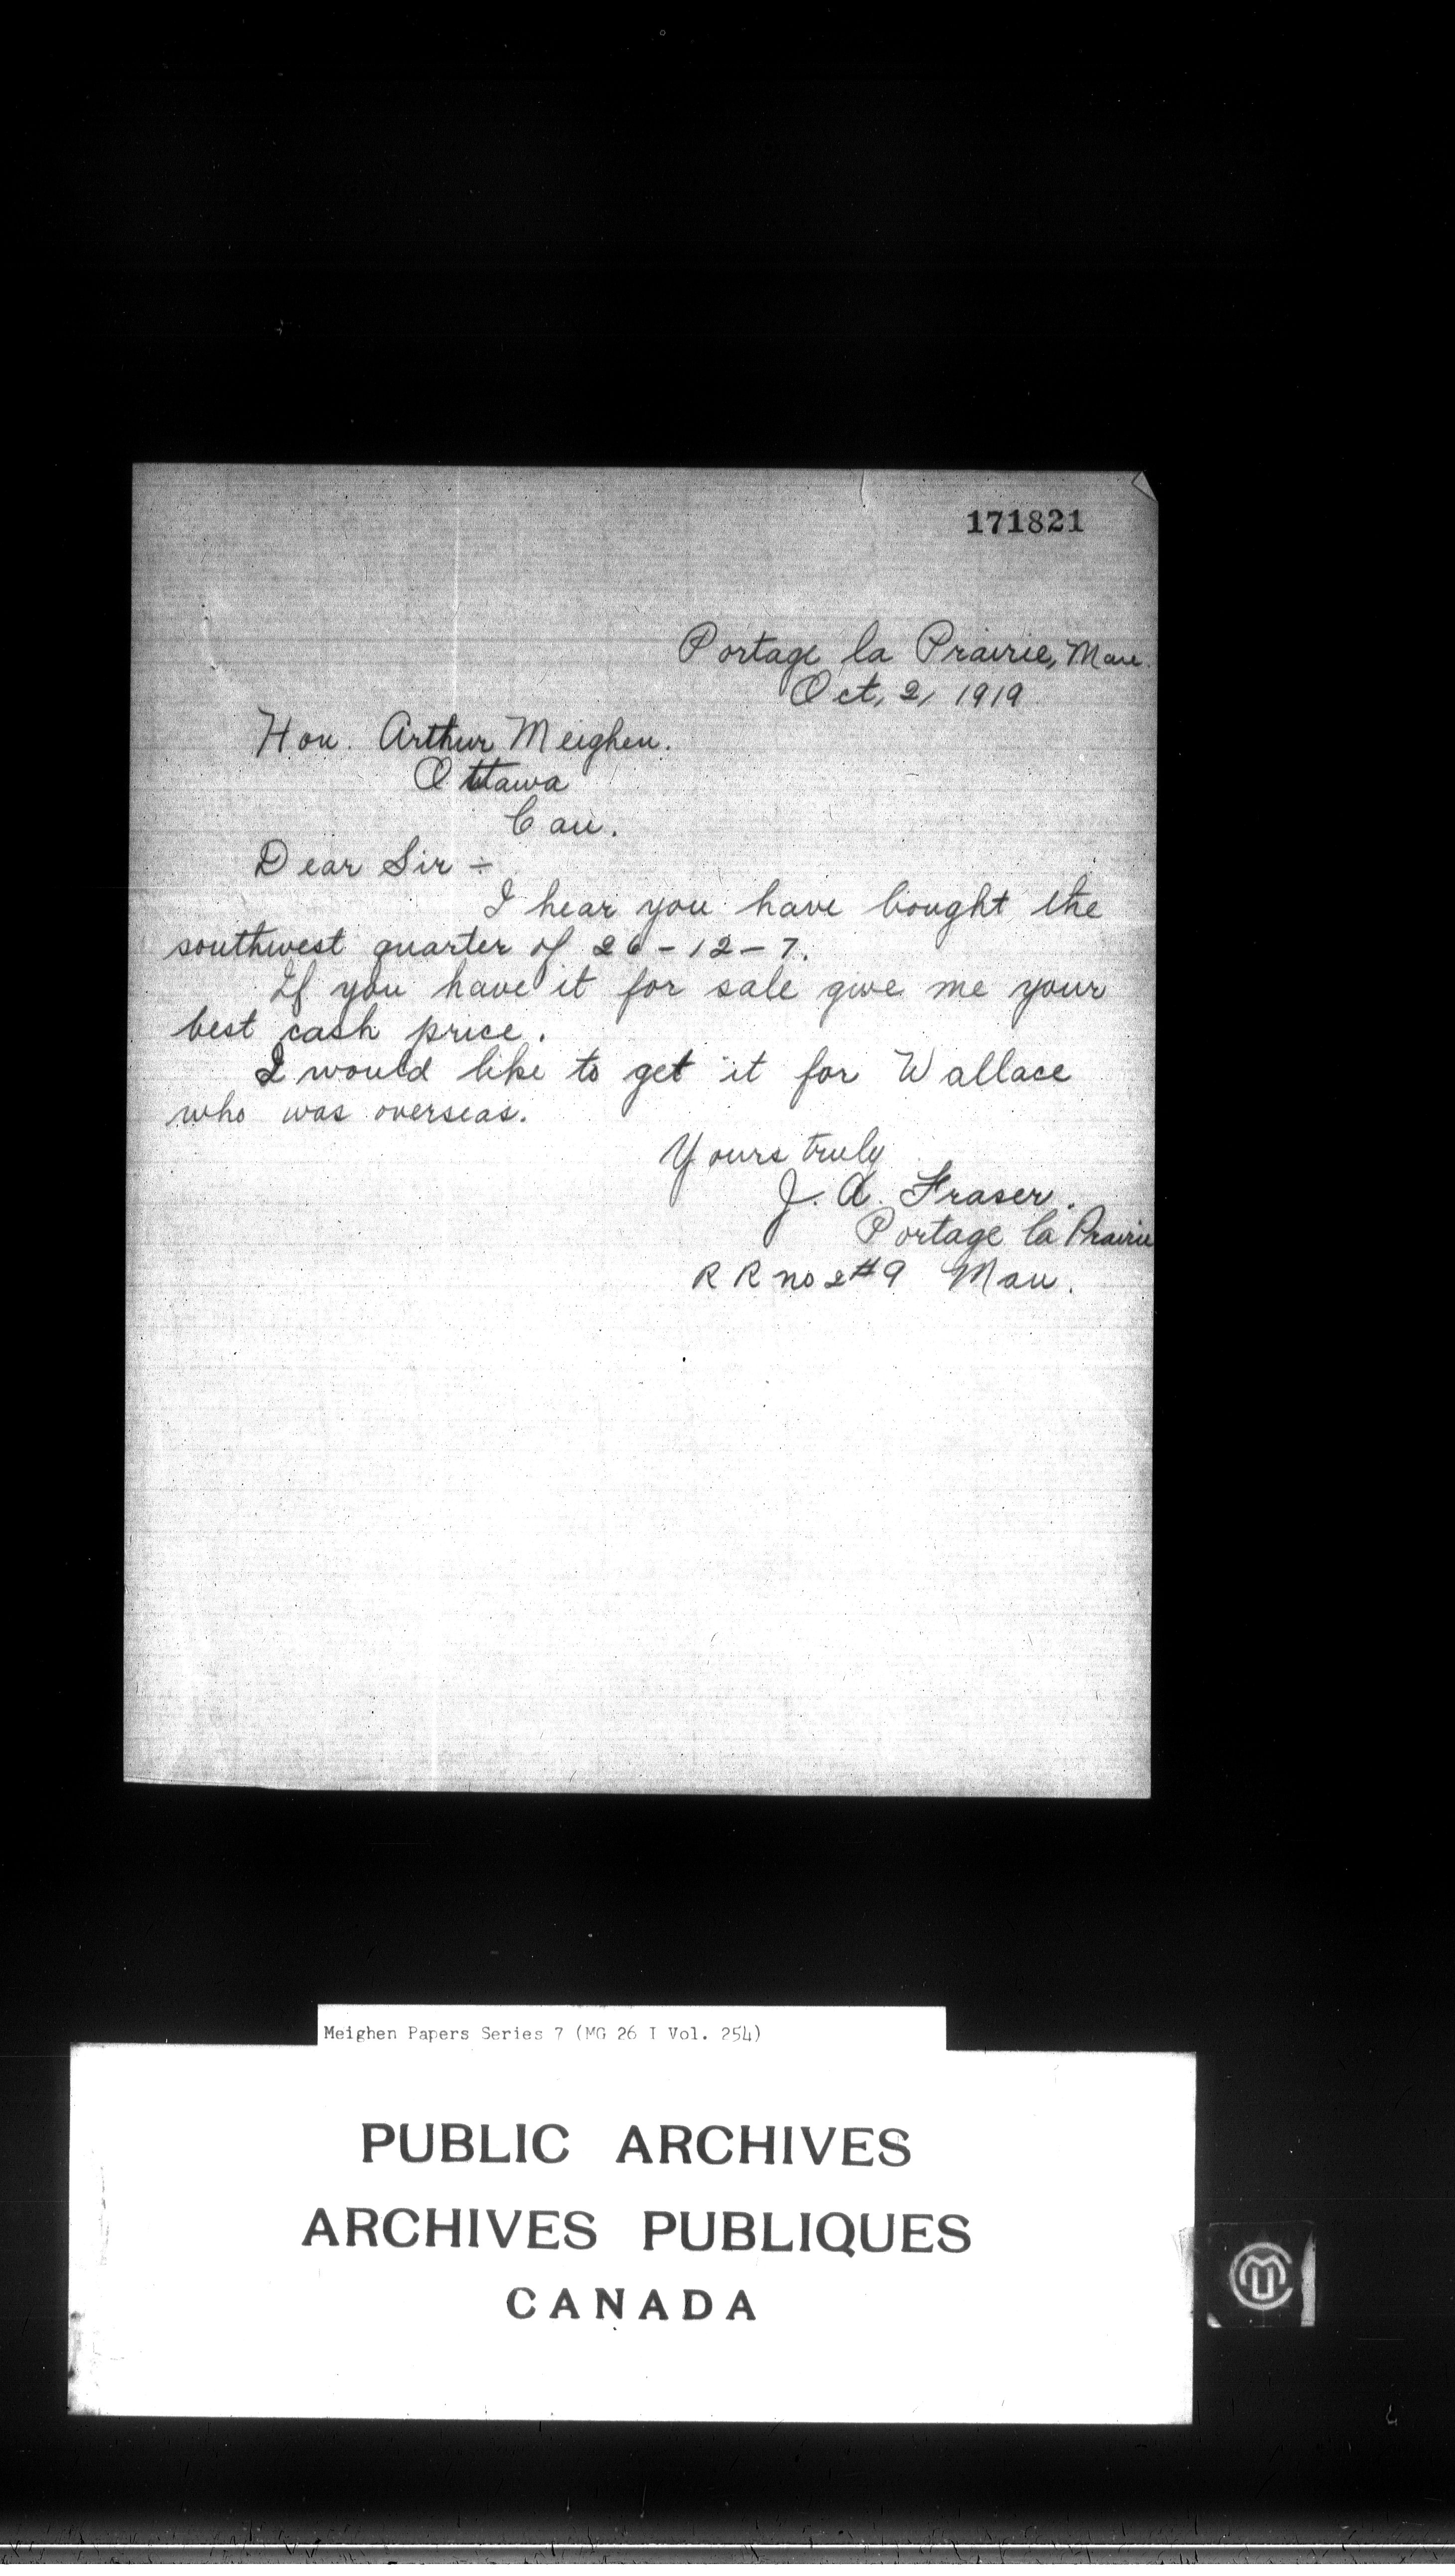 171821
Portage la Prairie, Man.
Oct, 2, 1919
Hon. Arthur Meighen.
Ottawa
Can.
Dear Sir ÷
I hear you have bought the
southwest quarter of 26 - 12 - 7.
If you have it for sale give me your
best cash price.
I would like to get it for Wallace
who was overseas.
Yours truly
J. A. Fraser.
Portage la Prairie
R R no 2 # 9 Man.
Meighen Papers Series 7 (MG 26 I Vol. 254)
PUBLIC ARCHIVES
ARCHIVES PUBLIQUES
CANADA